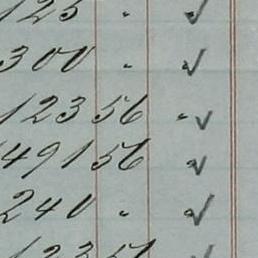 125 . ✓
300 . ✓
123 56 . ✓
491 56 ✓
240 . ✓
123 51 ✓